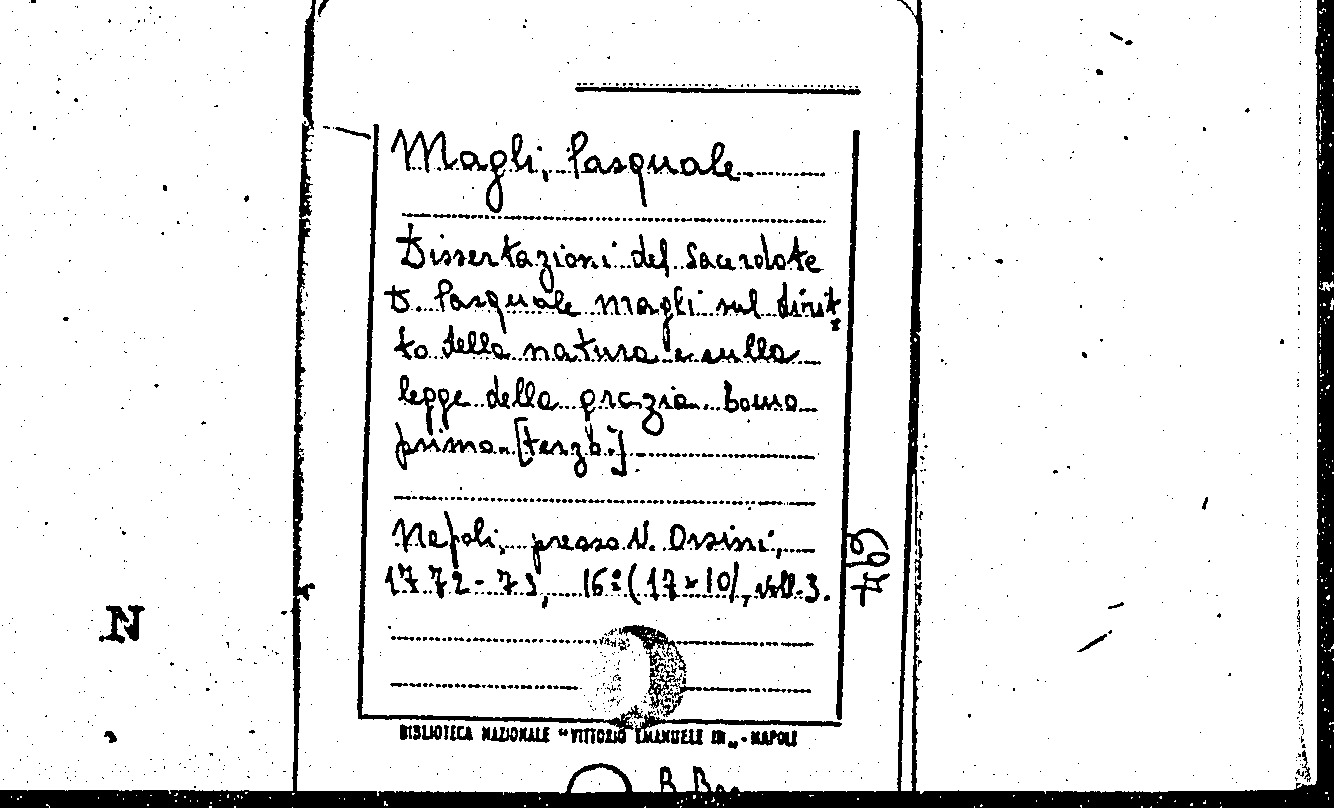 Magli, Pasquale
Dissertazioni del Sacerdote
D. Pasquale Magli sul dirit-
to della natura e sulla
legge della grazia. Tomo
primo. [terzo.]
Napoli, presso V. Orsini,
1772-73, 16º (17×10), voll. 3.
769
N
BIBLIOTECA NAZIONALE "VITTORIO EMANUELE III" - NAPOLI